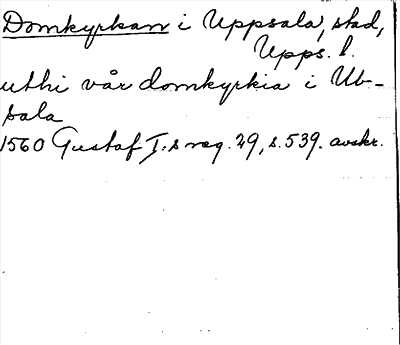 Domkyrkan i Uppsala, stad,
Upps. l.
uthi vår domkyrkia i Ub-
sala
1560 Gustaf I.s reg. 29, s. 539. avskr.